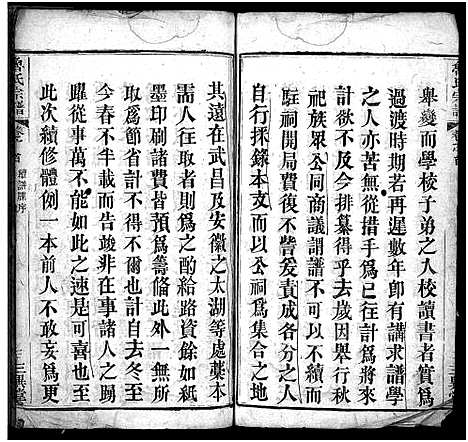 舉變而學校子弟之入校讀書者實爲
過渡時期若再遲數年卽有講求譜學
之人亦苦無從措手爲已往計爲將來
計欲不及今排纂得乎去歲因舉行秋
祀族眾公同商議謂譜不可不續而
駐祠開館後不啻爰責成各分各房
自行採錄本末以公祠爲集合之地
其遠在武昌及安徽之太湖等處藁本
需人往取者則爲之酌給路資餘如紙
墨印刷諸費皆預爲籌備此外一無所
取爲節省計不得不爾也計自去冬至
今春不半載而告竣非在事諸人之踴
躍從事萬不能如此之速是可喜也至
此次續修體例一本前人不敢妄爲更
魯氏宗譜
卷之首
續譜牒序
三異堂